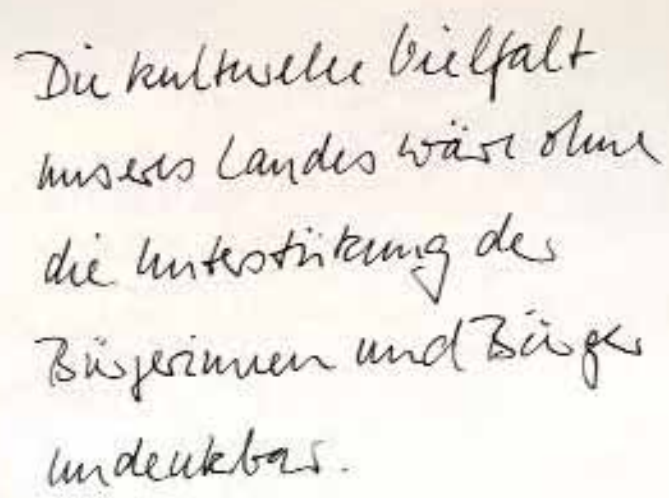 Die kulturelle Vielfalt
unseres Landes wäre ohne
die Unterstützung der
Bürgerinnen und Bürger
undenkbar.